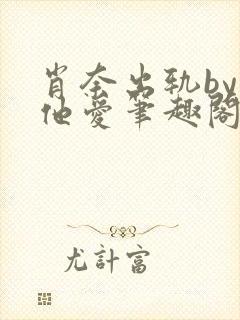 肖奈出轨by
他爱笔趣阁
尤計富